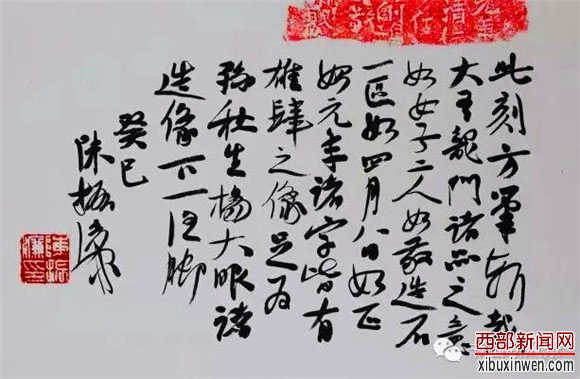 此刻方筆斬截
大有龍門諸品之意
如女子二人如敬造石
一區如四月八日如正
如元年諸字皆有
雄肆之像足為
孫秋生楊大眼諸
造像下一注脚
癸巳
陳振濂
陳振濂印
西部新闻网
xibuxinwen.com